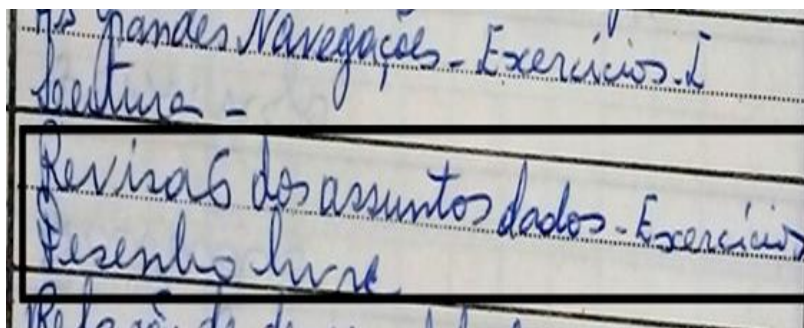 As Grandes Navegações - Exercícios - I
Leitura -
Revisão dos assuntos dados - Exercícios
Desenho livre
Relação